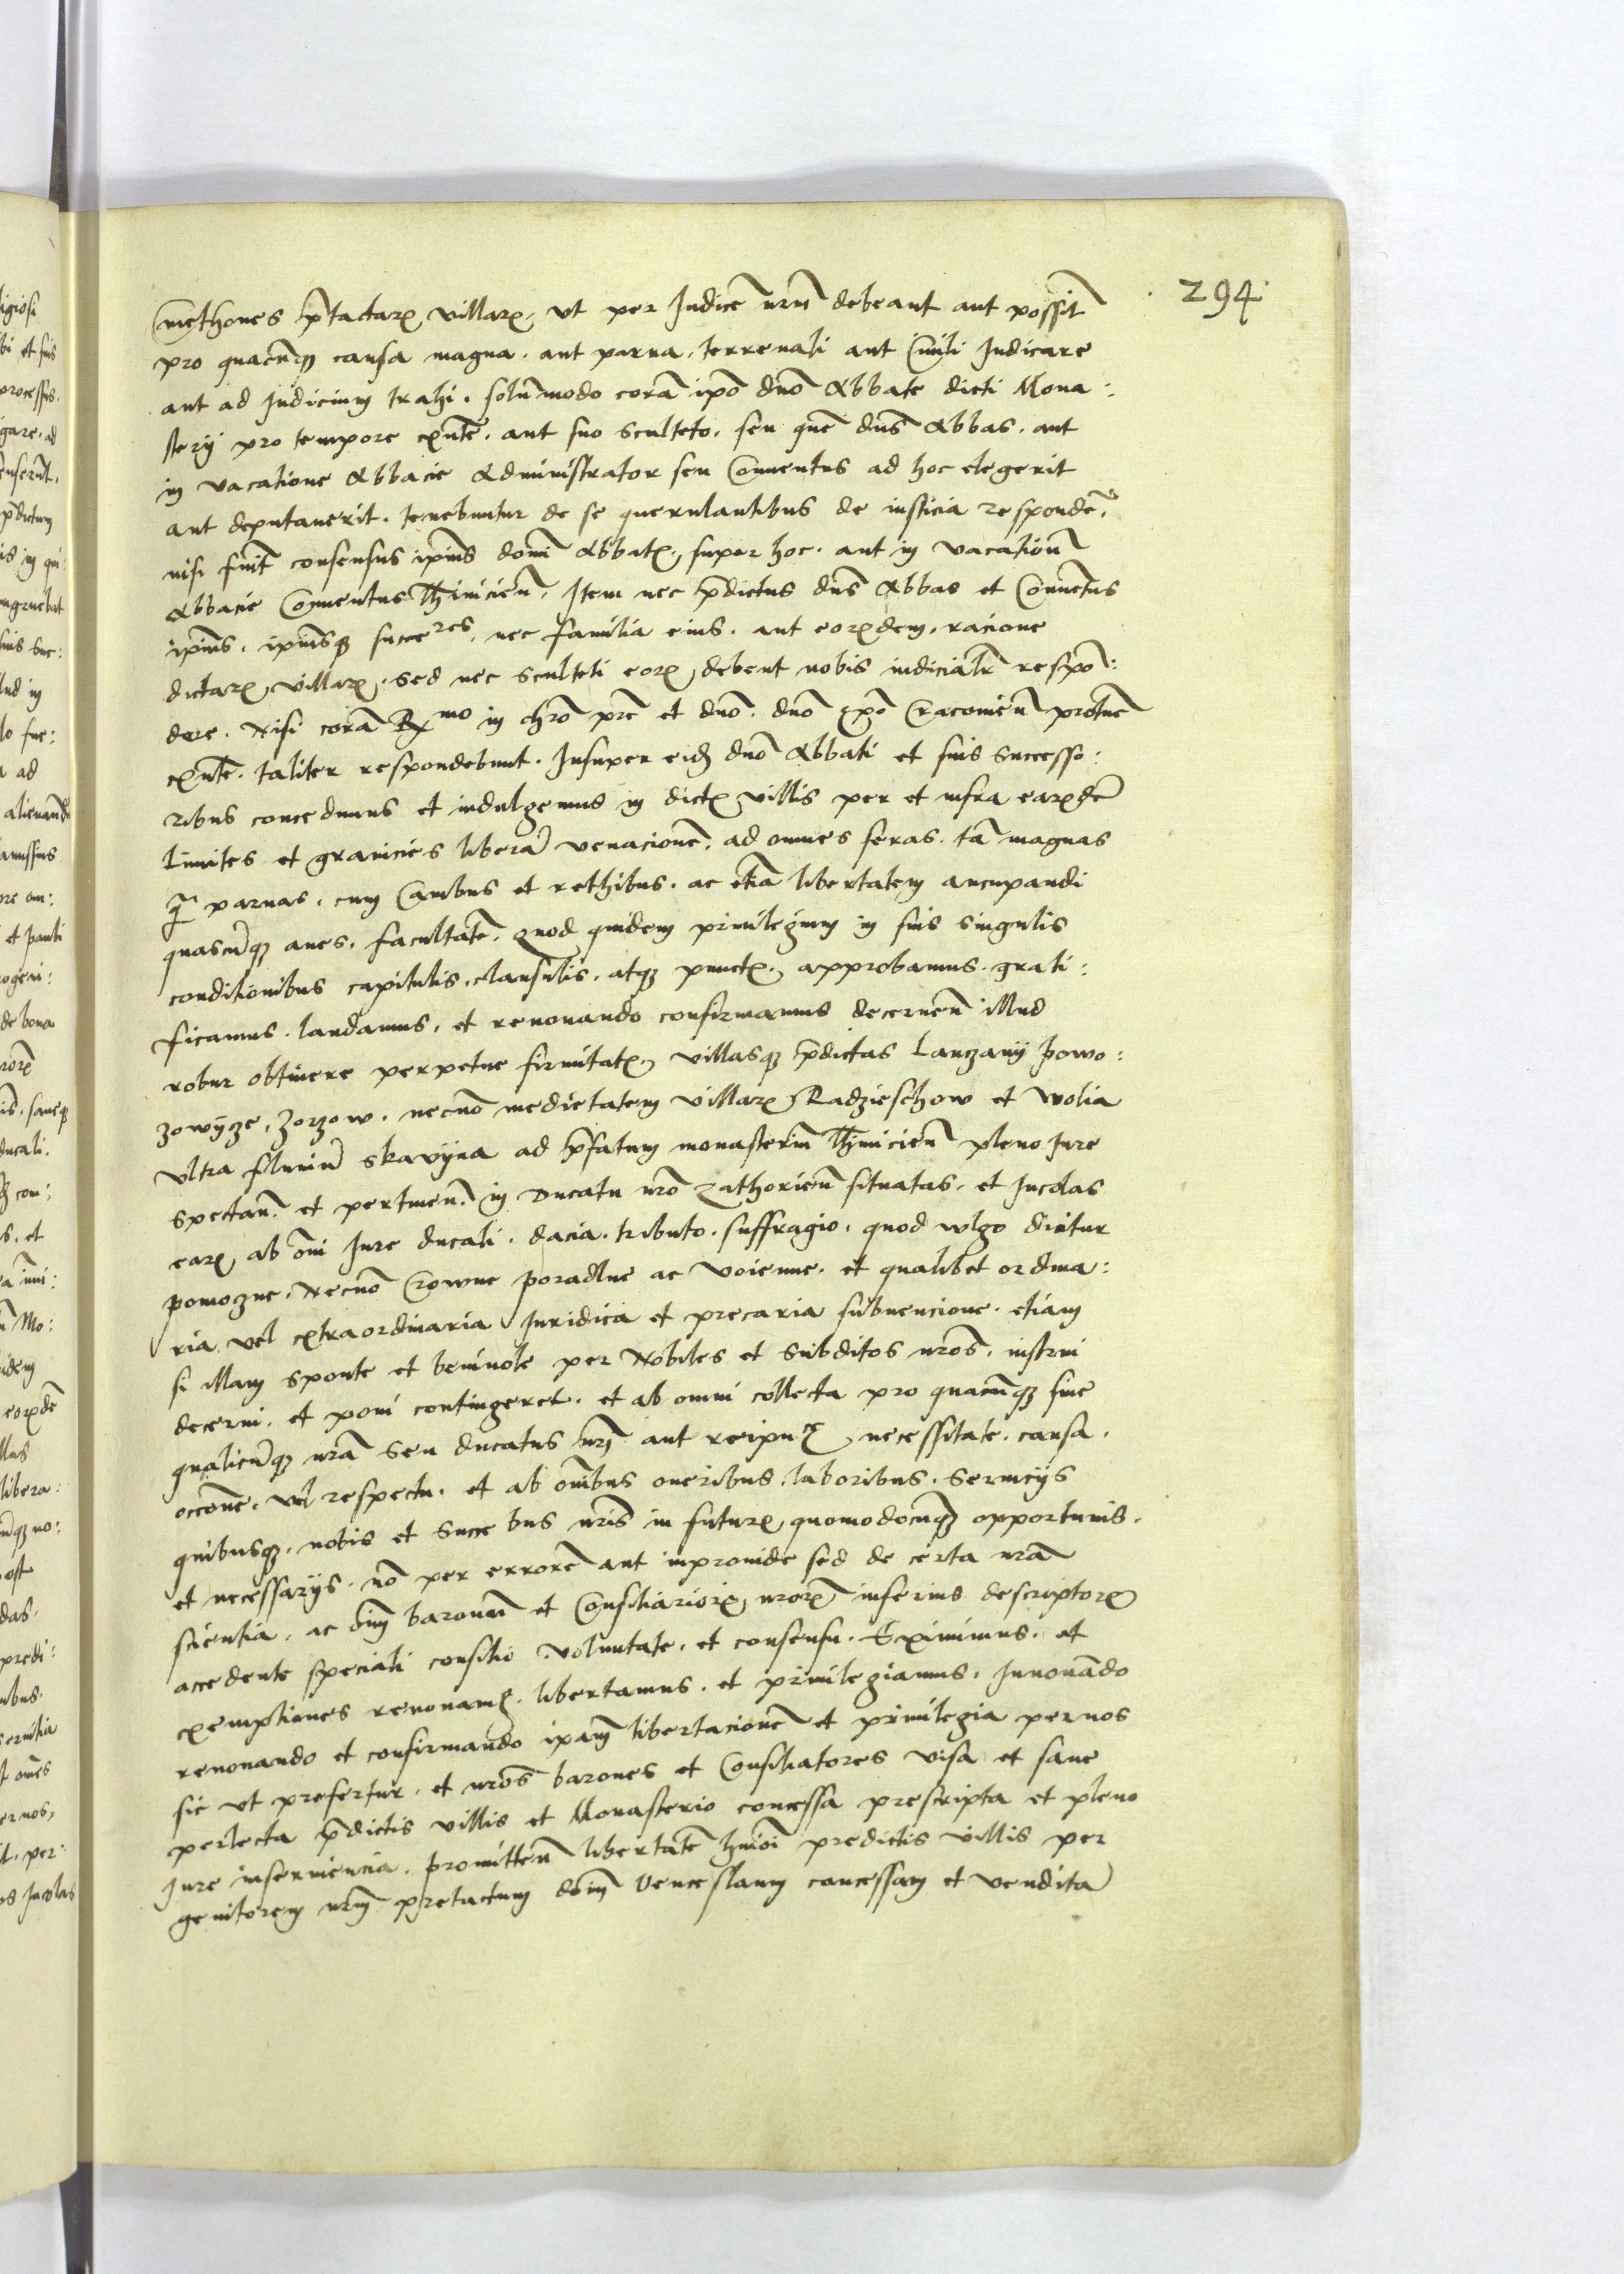 294
Cmethones p̄tactarꝫ villarꝫ, vt per Judicē nrm̄ debeant aut possīt
pro quacūqꝫ causa magna . aut parua . terrenali aut Ciuili Judicare
aut ad Judicium trahi . solūmodo corā ip̄o dn̄o Abbate dicti Mona :
stery pro tempore exn̄te . aut suo sculteto . seu quē dn̄s Abbas . aut
in vacatione Abbacie Administrator seu Conuentus ad hoc elegerit
aut deputauerit . tenebuntur de se querulantibus de iusticia respondē .
nisi fuīt consensus ipius domī Abbatꝫ, super hoc . aut in vacation̄
Abbacie Conuentus Thinicien̄ . Item nec p̄dictus dn̄s Abbas et Conuētus
ipius . ipiusqꝫ succeres . nec familia eius . aut eorꝫdem . racione
dictarꝫ, villarꝫ . sed nec sculteti eorꝫ, debent nobis iudicialr̄ respō :
dere . Nisi corā Rmo in chrō prē et dn̄o . dn̄o Ep̄o Cracouien̄ protūc
exn̄te . taliter respondebunt . Insuper eidꝫ dn̄o Abbati et suis Successo :
ribus concedimus et indulgemus in dictꝫ villis per et infra earꝫdē
Limites et granicies liberā venacionē . ad omnes feras . tā magnas
q̄ paruas . cum Canibus et rethibus . ac etiā libertatem aucupandi
quascūqꝫ aues . facultatē . Quod quidem priuilegium in suis singulis
conditionibus capitulis . clausulis . atqꝫ punctꝫ, approbamus . grati :
ficamus . laudamus . et renouando confirmamus decernen̄ illud
robur obtinere perpetue firmitatꝫ, villasqꝫ p̄dictas Lanczany Powo :
zowycze . Zorzow . necnō medietatem villarꝫ Radzieschow et Wolia
vltra fluuiū skavyna ad p̄fatum monasteriū Thinicien̄ pleno Jure
Spectan̄ . et pertinen̄ . in Ducatu nrō Zathorien̄ situatas . et Incolas
earꝫ, ab ōni Jure ducali . dacia . tributo . suffragio . quod wlgo dicitur
pomoczne . Necnō Crowne poradlne ac Voienne . et qualibet ordina :
ria vel extraordinaria Juridica et precaria subuencione . etiam
si illam sponte et beniuole per Nobiles et Subditos nrōs . instrui
decerni . et poni contingeret . et ab omni collecta pro quacūqꝫ siue
qualicūqꝫ nrā seu ducatus nrī aut reipucꝫ, necessitate . causa .
occōne . vel respectu . et ab ōnibus oneribus . laboribus . seruicijs
quibusqꝫ . nobis et Succe bus nrīs in futurꝫ, quomodocūqꝫ opportunis .
et necessarijs . nō per errorē aut inprouide sed de certa nrā
scientia . ac dīm baronum et Consiliariorꝫ, nrorꝫ inferius descriptorꝫ
accedente speciali consilio voluntate . et consensu . Eximimus . et
exemptiones renouamꝫ . libertamus . et priuilegiamus . Innouādo
renouando et confirmando ipam̄ libertacionē et priuilegia per nos
sic vt prefertur . et nrōs barones et Consiliatores visa et sane
perlecta p̄dictis villis et Monasterio concessa prescripta et pleno
Jure inseruiencia . promitten̄ libertatē hmōi predictis villis per
genitorem nrm̄ pretactum dōim Venceslaum concessam et venditā